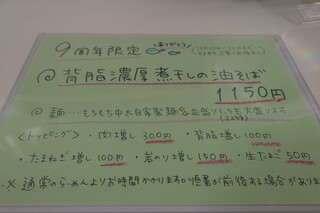 9周年限定 ありがとう
◎背脂濃厚煮干しの油そば
1150円
◎麺…もちもち中太自家製麺
<トッピング>・肉増し300円・背脂増し100円
・たまねぎ増し100円・岩のり増し150円・生たまご50円
※通常のらーめんよりお時間かかります